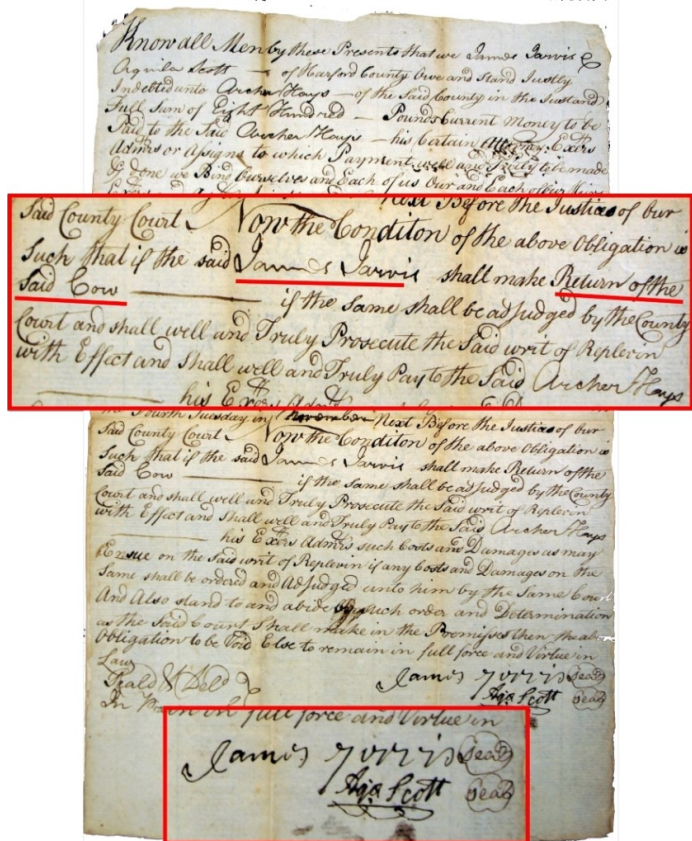 Know all Men by these Presents that we James Jarvis &
Aquila Scott — of Harford County Owe and Stand Justly
Indebted unto Archer Hays — of the Said County in the Just and
Full Sum of Eight Hundred — Pounds Current Money to be
Paid to the Said Archer Hays — his Certain Attorney, Exrs
Admrs or Assigns to which Payment well and truly to be made
& done we Bind Ourselves and Each of us Our and Each of our Heirs
next Before the Justices of our
Said County Court Now the Conditon of the above Obligation is
Such that if the said James Jarvis shall make Return of the
Said Cow — if the Same shall be adjudged by the County
Court and shall well and Truly Prosecute the Said writ of Replevin
with Effect and Shall well and Truly Pay to the Said Archer Hays
— his Exrs Admrs
the Fourth Tuesday in November Next Before the Justices of our
Said County Court Now the Conditon of the above Obligation is
Such that if the said James Jarvis shall make Return of the
Said Cow — if the Same shall be adjudged by the County
Court and shall well and Truly Prosecute the Said writ of Replevin
with Effect and Shall well and Truly Pay to the Said Archer Hays
— his Exrs Admrs such Costs and Damages as may
Ensue on the Said writ of Replevin if any Costs and Damages on the
Same shall be ordered and Adjudged unto him by the Same Court
And Also stand to and abide by such order and Determination
as the Said Court Shall make in the Premises then the above
Obligation to be Void Else to remain in full force and Virtue in
Law
Seald & Deld
In
James Jarvis Seal
Aqa Scott Seal
in full force and Virtue in
James Jarvis Seal
Aqa Scott Seal